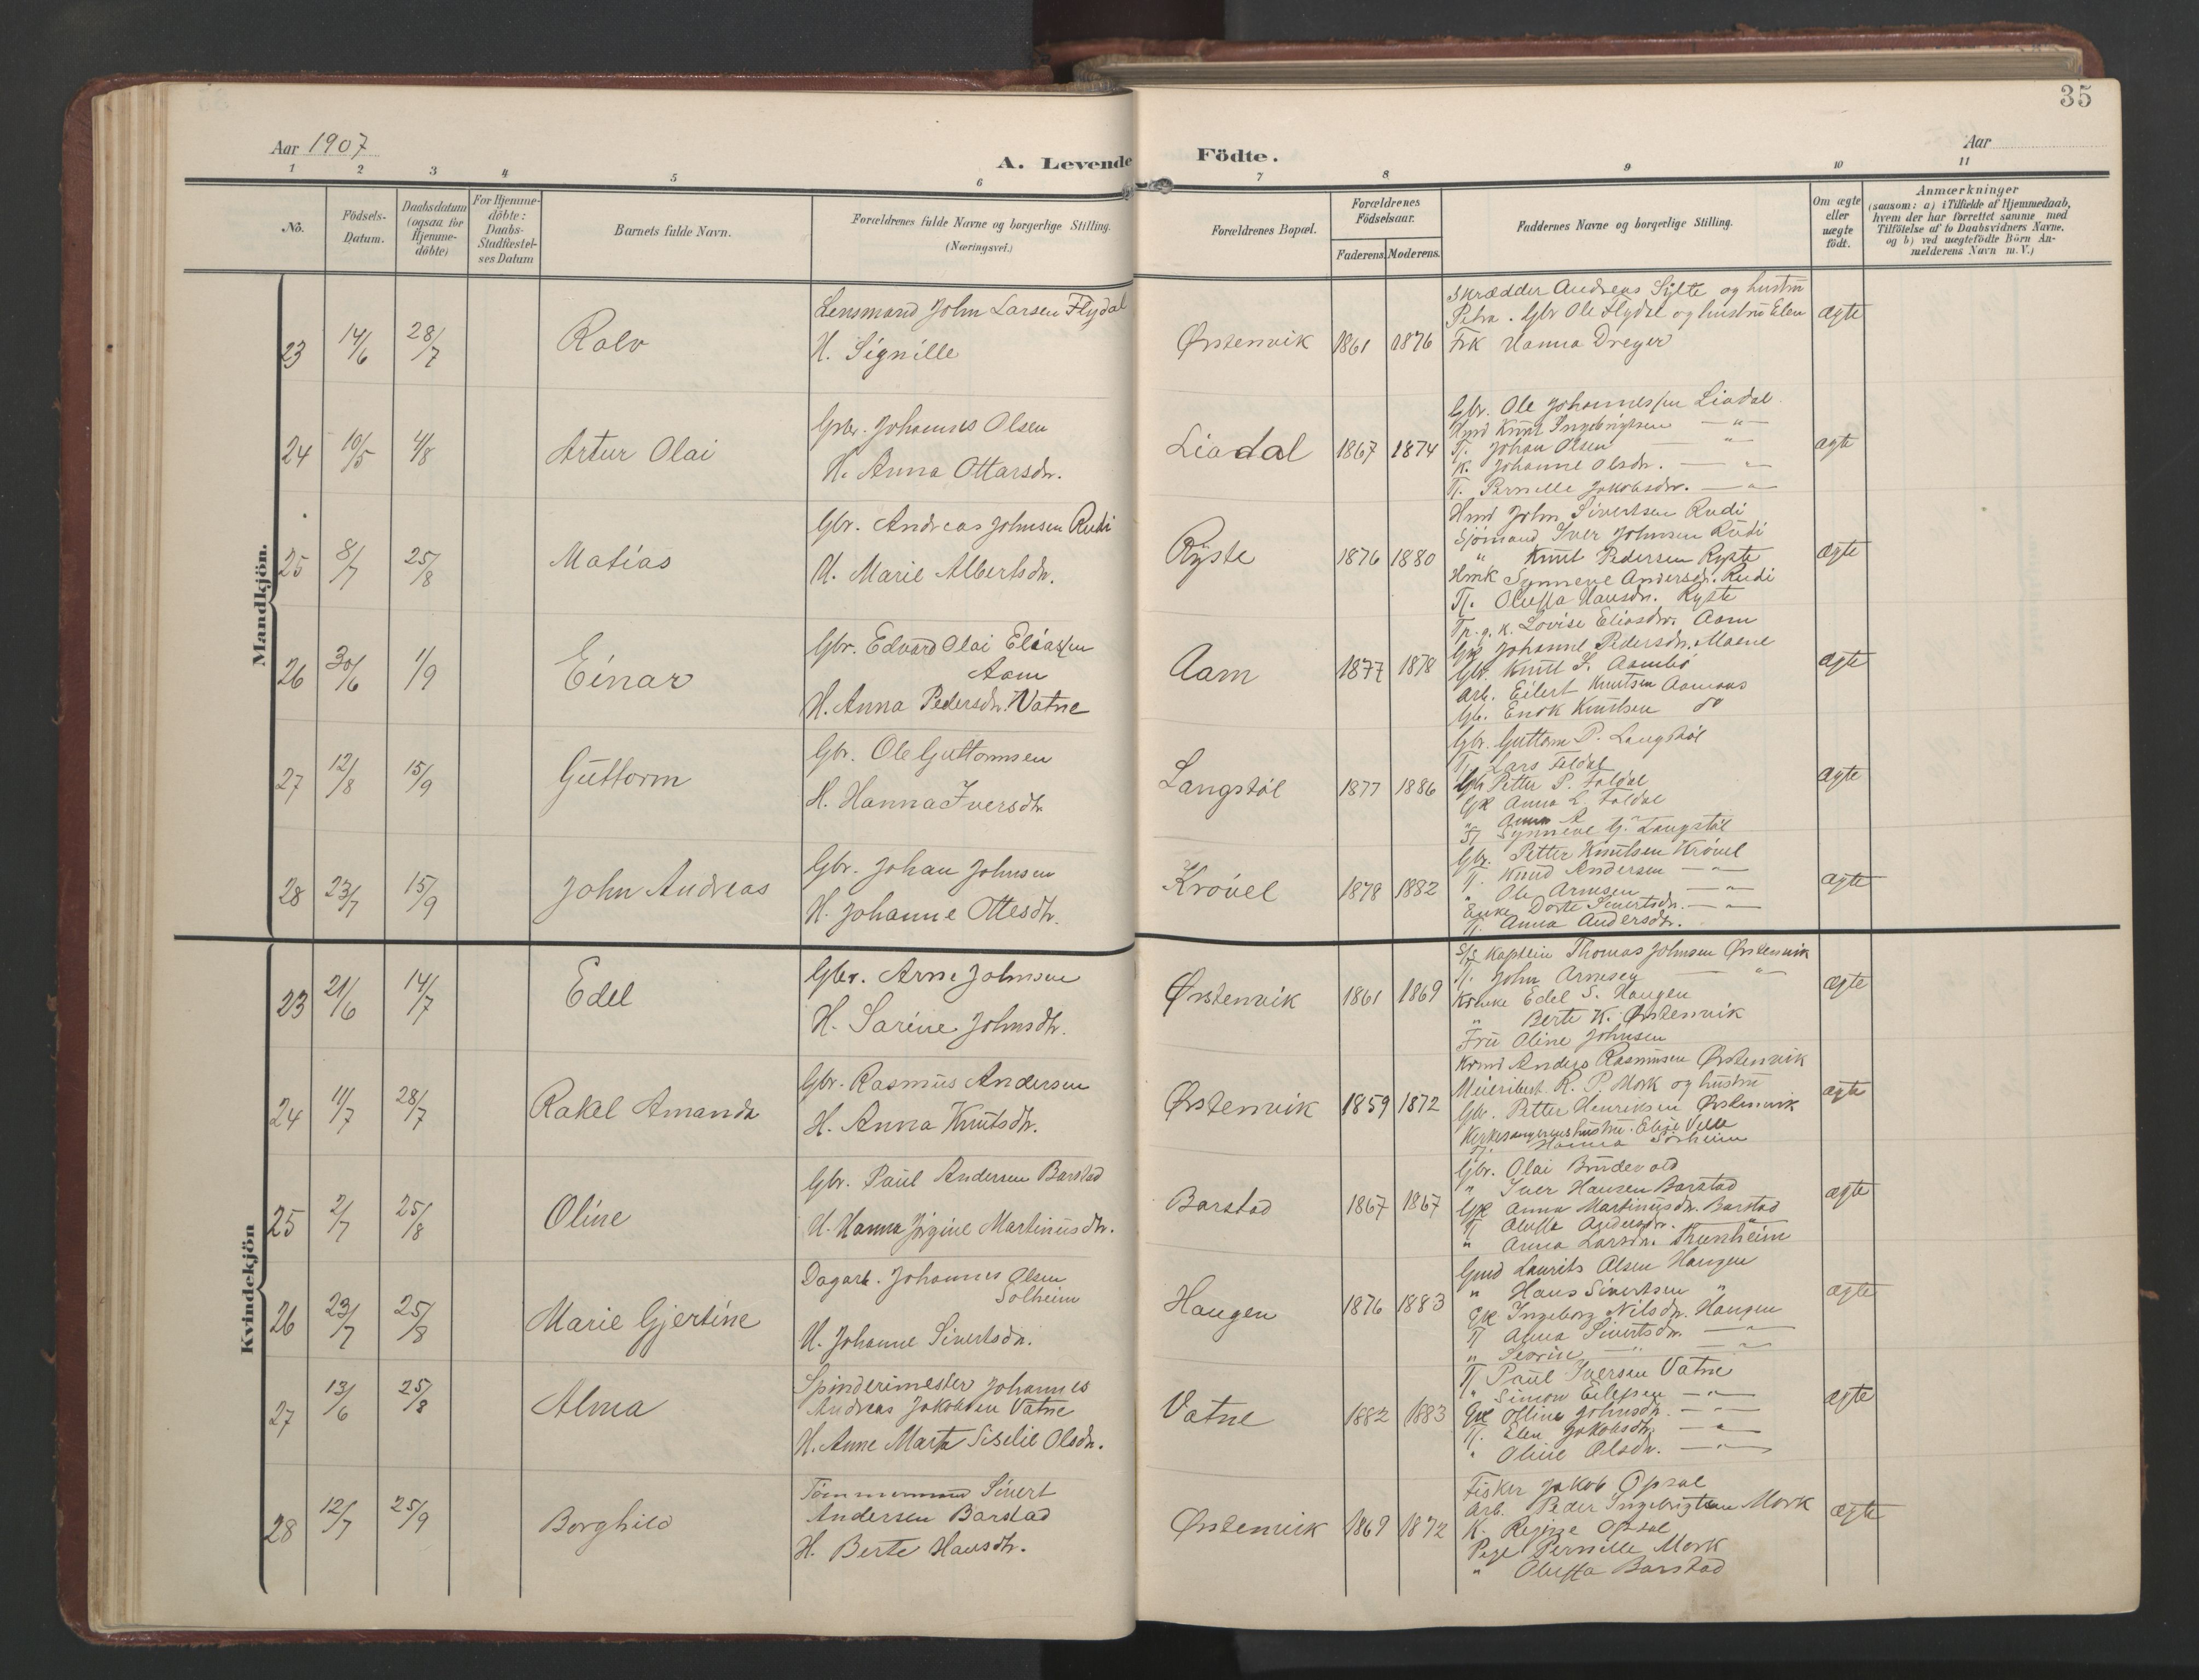 35
Aar 1907
Aar
A. Levende Födte.
1 2 3 4 5 6 7 8 9 10 11
No.
Födsels-Datum.
Daabsdatum (ogsaa for Hjemme-döbte)
For Hjemme-döbte: Daabs-Stadfæstel-ses Datum
Barnets fulde Navn.
Forældrenes fulde Navne og borgerlige Stilling. (Næringsvei.)
Forældrenes Bopæl.
Forældrenes Födselsaar.
Faderens. Moderens.
Faddernes Navne og borgerlige Stilling.
Om ægte eller uægte födt.
Anmærkninger
(saasom: a) i Tilfælde af Hjemmedaab,
hvem der har forrettet samme med
Tilföielse af to Daabsvidners Navne,
og b) ved uægtefödte Börn An-
melderens Navn m. V.)
Mandkjön.
23 14/6 28/7 Ralv
Lensmand John Larsen Flydal
H. Signille
Ørstenvik 1861 1876
Skrædder Andreas Sylte og hustru
Petra. Gbr Ole Flydal og hustru Elen
Frk Hanna Dreyer
ægte
24 10/5 4/8 Artur Olai
Gbr. Johannes Olsen
H. Anna Ottarsdtr.
Liadal 1867 1874
Gbr. Ole Johannessen Liadal
Hmd Knut Ingebrigtsen — " —
Tj. Johan Olsen — " —
K. Johanne Olsdtr. — " —
Tj. Pernille Jakobsdtr. — " —
ægte
25 8/7 25/8 Matias
Gbr. Andreas Johnsen Rudi
H. Marie Albertsdtr.
Ryste 1876 1880
Hmd John Sivertsen Rudi
Sjömand Iver Johnsen Rudi
" Knut Pedersen Ryste
Hmk Synneve Andersdtr. Rudi
Tj. Oluffa Hansdtr. Ryste
ægte
26 30/6 1/9 Einar
Gbr. Edvard Olai Eliassen
Aam
H. Anna Pedersdtr. Vatne
Aam 1877 1878
Lovise Eliasdtr. Aam
Gk Johanne Pedersdtr. Maene
Gbr. Knut S. Aambö
Arb. Eilert Knutsen Aamaas
Gb. Enok Knutsen do
ægte
27 12/8 15/9 Guttorm
Gbr. Ole Guttormsen
H. Hanna Iversdtr
Langstöl 1877 1886
Gbr. Guttorm P. Langstöl
Tj. Lars Foldal
Gbr Petter P. Foldal
Gk Anna L. Foldal
" Anna R "
Tj Synneve G. Langstöl
ægte
28 23/7 15/9 John Andreas
Gbr. Johan Johnsen
H. Johanne Ottesdtr.
Krövel 1878 1882
Gbr. Petter Knutsen Krövel
Tj. Knud Andersen — " —
" Ole Arnesen — " —
Enke Dorte Sivertsdtr. — " —
Tj. Anna Andersdtr.
ægte
Kvindekjön
23 21/6 14/7 Edel
Gbr. Arne Johnsen
H. Sarine Johnsdtr.
Ørstenvik 1861 1869
S/S Kaptein Thomas Johnsen Ørstenvik
Tj. John Arnesen — " —
Edel S. Haugen
" Berte K. Ørstenvik
Fru Oline Johnsen
ægte
24 11/7 28/7 Rakel Amanda
Gbr. Rasmus Andersen
H. Anna Knutsdtr.
Ørstenvik 1859 1872
Anders Rasmussen Ørstenvik
Meieribest. R. P. Mork og hustru
Gbr. Petter Henriksen Ørstenvik
Kirkesangerens hustru Elise Velle
Tj. Hanna Sörheim
ægte
25 2/7 25/8 Oline
Gbr. Paul Andersen Barstad
H. Hanna Jörgine Martinusdtr.
Barstad 1867 1867
Gbr. Olai Brudevold
" Iver Hansen Barstad
Gk Anna Martinusdtr. Barstad
Tj Oluffa Andersdtr. — " —
" Anna Larsdtr.
ægte
26 23/7 25/8 Marie Gjertine
Dagarb. Johannes Olsen
Solheim
H. Johanne Sivertsdtr.
Haugen 1876 1883
Gmd Laurits Olsen Haugen
" Hans Sivertsen "
Gk Ingeborg Nilsdtr. Haugen
Tj Anna Sivertsdtr. — " —
" Severine — " —
ægte
27 13/6 25/8 Alma
Spinderimester Johannes
Andreas Jakobsen Vatne
H. Anne Marta Siselie Olsdtr.
Vatne 1882 1883
Tj Paul Iversen Vatne
" Simon Eilefsen — " —
Gk Olline Johnsdtr. — " —
Tj. Elen Jakobsdtr. — " —
" Oline Olsdtr. — " —
ægte
28 12/7 25/9 Borghild
Tömmermand Sivert
Andersen Barstad
H. Berte Hansdtr.
Ørstenvik 1869 1872
Fisker Jakob Opsal
Arb. Peder Ingebrigtsen Mork
K. Regine Opsal
Pige Pernille Mork
" Oluffa Barstad
ægte